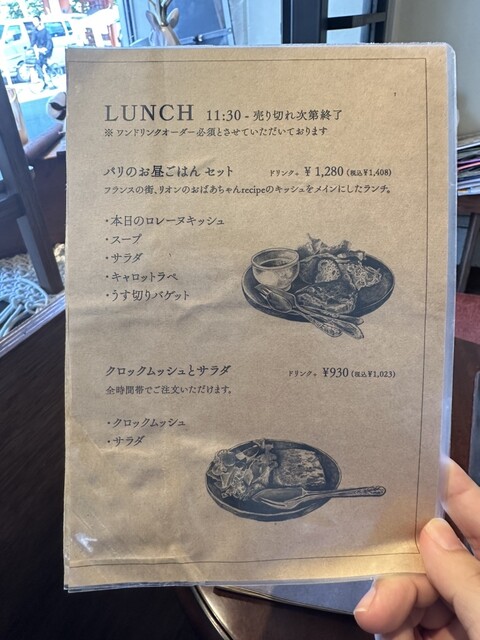 LUNCH 11:30 - 売り切れ次第終了
※ ワンドリンクオーダー必須とさせていただいております
パリのお昼ごはん セット ドリンク+ ¥1,280 (税込¥1,408)
フランスの街、リオンのおばあちゃんrecipeのキッシュをメインにしたランチ。
・本日のロレーヌキッシュ
・スープ
・サラダ
・キャロットラペ
・うす切りバゲット
クロックムッシュとサラダ ドリンク+ ¥930 (税込¥1,023)
全時間帯でご注文いただけます。
・クロックムッシュ
・サラダ